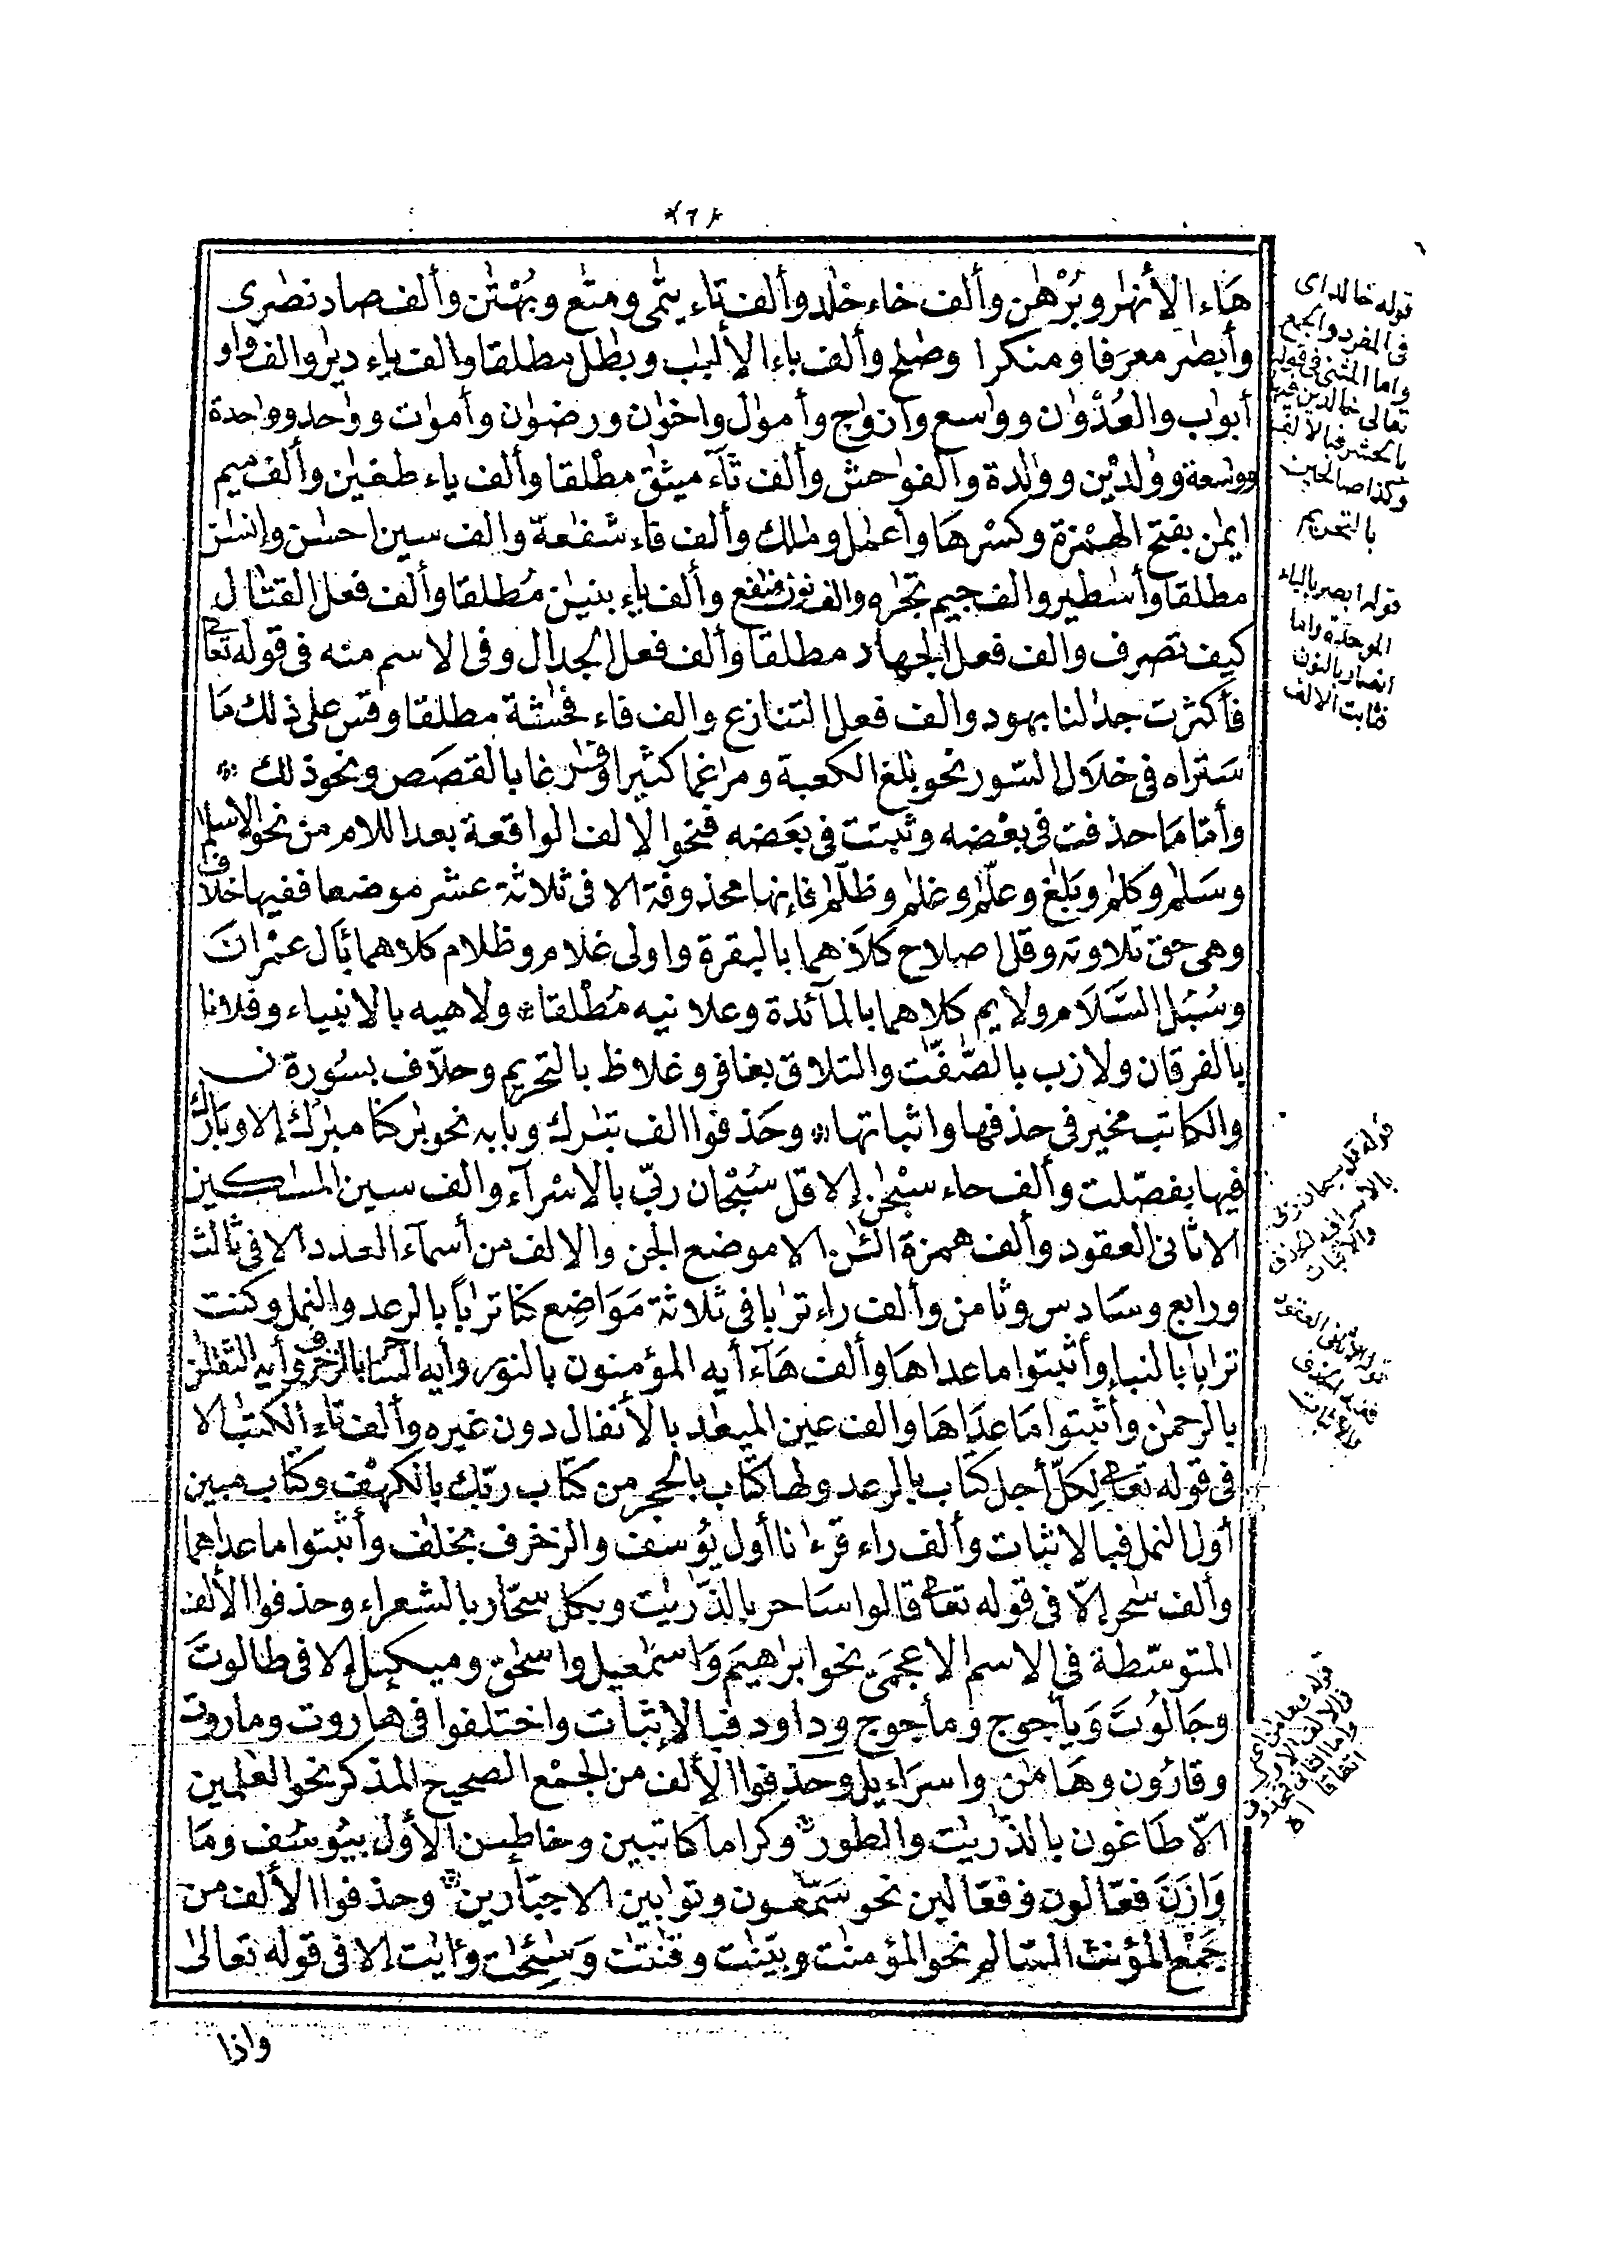 هَاء الأنهٰر وبُرْهٰن وألف خاء خٰلد وألف تاء يتٰمى ومتٰع وبُهْتٰن وألف صاد نصٰرى
وأبصٰر معرفا ومنكرا وصٰلح وألف باء الألبٰب وبٰطل مطلقا والف ياء ديٰر والف واو
أبوٰب والعُدْوٰن ووٰاسع وأزوٰاج وأموٰل واخوٰن ورضوٰن وأموٰت ووٰاحد ووٰاحدة
ووٰسعة ووٰلدَيْن ووٰلدة والفوٰحش وألف ثآء ميثٰق مطْلقا وألف ياء طغيٰن وألف ميم
ايمٰن بفتح الهمْزة وكسْرهَا وأعمٰل ومٰلك وألف فاء شفٰعة والف سين احسٰن وإنسٰن
مطلقا وأسٰطير والف جيم تجٰره والف نون منٰفع وألف ياء بنيٰن مُطلقا وألف فعل القتٰال
كيف تصرف والف فعل الجهاد مطلقا وألف فعل الجدال وفى الاسم منه فى قوله تعا
فأكثرت جدٰلنا بهود والف فعل التنازع والف فاء فٰحشة مطلقا وقس على ذلك مَا
سَتراه فى خلال السّور نحو بٰلغ الكعبة ومرٰغما كثيرا وفٰرغا بالقصَص ونحو ذلك
وأمّا مَا حذفت فى بعْضه وثبتت فى بعَضه فنحو الالف الواقعة بعد اللام من نحو الاسلٰم
وسَلٰم وكلٰم وبَلٰغ وعلّٰم وغلٰم وظلّٰم فإنها محذوفة الا فى ثلاثة عشر موضعا ففيها خلاف
وهى حق تلاوته وقل اصلاح كلاهما بالبقرة واولى غلام وظلام كلاهما بآل عمْرانَ
وسُبُل السَّلَام ولايم كلاهما بالمآئدة وعلانيه مُطْلقا ولاهيه بالانبياء وفلانا
بالفرقان ولازب بالصّٰفّٰت والتلاق بغافر وغلاظ بالتحريم وحلاّف بسُورة ن
والكاتب مخير فى حذفها واثباتها وحَذفوا الف تبٰرك وبابه نحو بٰركنا مبٰرك إلا وبَارك
فيها بفصّلت وألف حاء سبْحٰن إلا قل سُبْحان ربّى بالاسْرآء والف سين المسٰكين
الا ثانى العقود وألف همزة الئٰن الا موضع الجن والالف من أسمآء العدد الا فى ثالث
ورابع وسَادس وثامن وألف راء ترٰبا فى ثلاثة مَوَاضِع كنا ترٰباً بالرعد والنمل وكنت
ترٰبا بالنباء وأثبتوا ما عداهَا وألف هَآء أيه المؤمنون بالنور وأيه السّاحر بالزخرف وأيه الثقلٰن
بالرحمٰن وأثبتوا مَا عدَاهَا والف عين الميعٰد بالأنفال دون غيره وألف تاء الكتٰب الا
فى قوله تعا لكلّ أجل كتاب بالرعد ولها كتاب بالحجر من كتاب ربّك بالكهْف وكتاب مبين
أول النمل فبالاثبات وألف راء قرءانا أول يُوسف والزخرف بخلٰف وأثبتوا ما عداهما
وألف سٰحر إلاّ فى قوله تعا قالوا ساحر بالذّٰريٰت وبكل سحّار بالشعراء وحذفوا الألف
المتوسّطة فى الاسم الاعجمىّ نحو ابرٰهيم وَاسمٰعيل واسحٰق وميكٰئيل إلا فى طالوتَ
وجَالُوتَ وَيأجوج ومأجوج وداود فبالإثبات واختلفوا فى هاروت وماروت
وقارُون وهَامٰن واسرَاءيل وحذفوا الألف من الجمْع الصحيح المذكر نحو العٰلمين
الاّ طَاغون بالذّٰريٰت والطور وكراما كاتبين وخاطـين الأول بيُوسُف ومَا
وَازَنَ فعّالون وفعّالين نحو سَمّٰعـون وتوٰبين الا جبّارين وحذفوا الألف من
جَمْع المؤنث السّالم نحو المؤمنٰت وبيّنٰت وقٰنتٰت وسٰئحٰت وءايٰت إلا فى قوله تعالىٰ
واذا
قوله خالد اى
فى المفرد والجمع
واما المثنى فى قوله
تعالى خالدين فيها
بالحشر فبالالف
وكذا صالحين
بالتحريم
قوله ابصر بالباء
الموحدة واما
انصار بالنون
فثابت الالف
قوله قل سبحان ربى
بالاسراء فيه الحذف
والاثبات
قوله الا ثانى العقود
ففيه الحذف
والاثبات